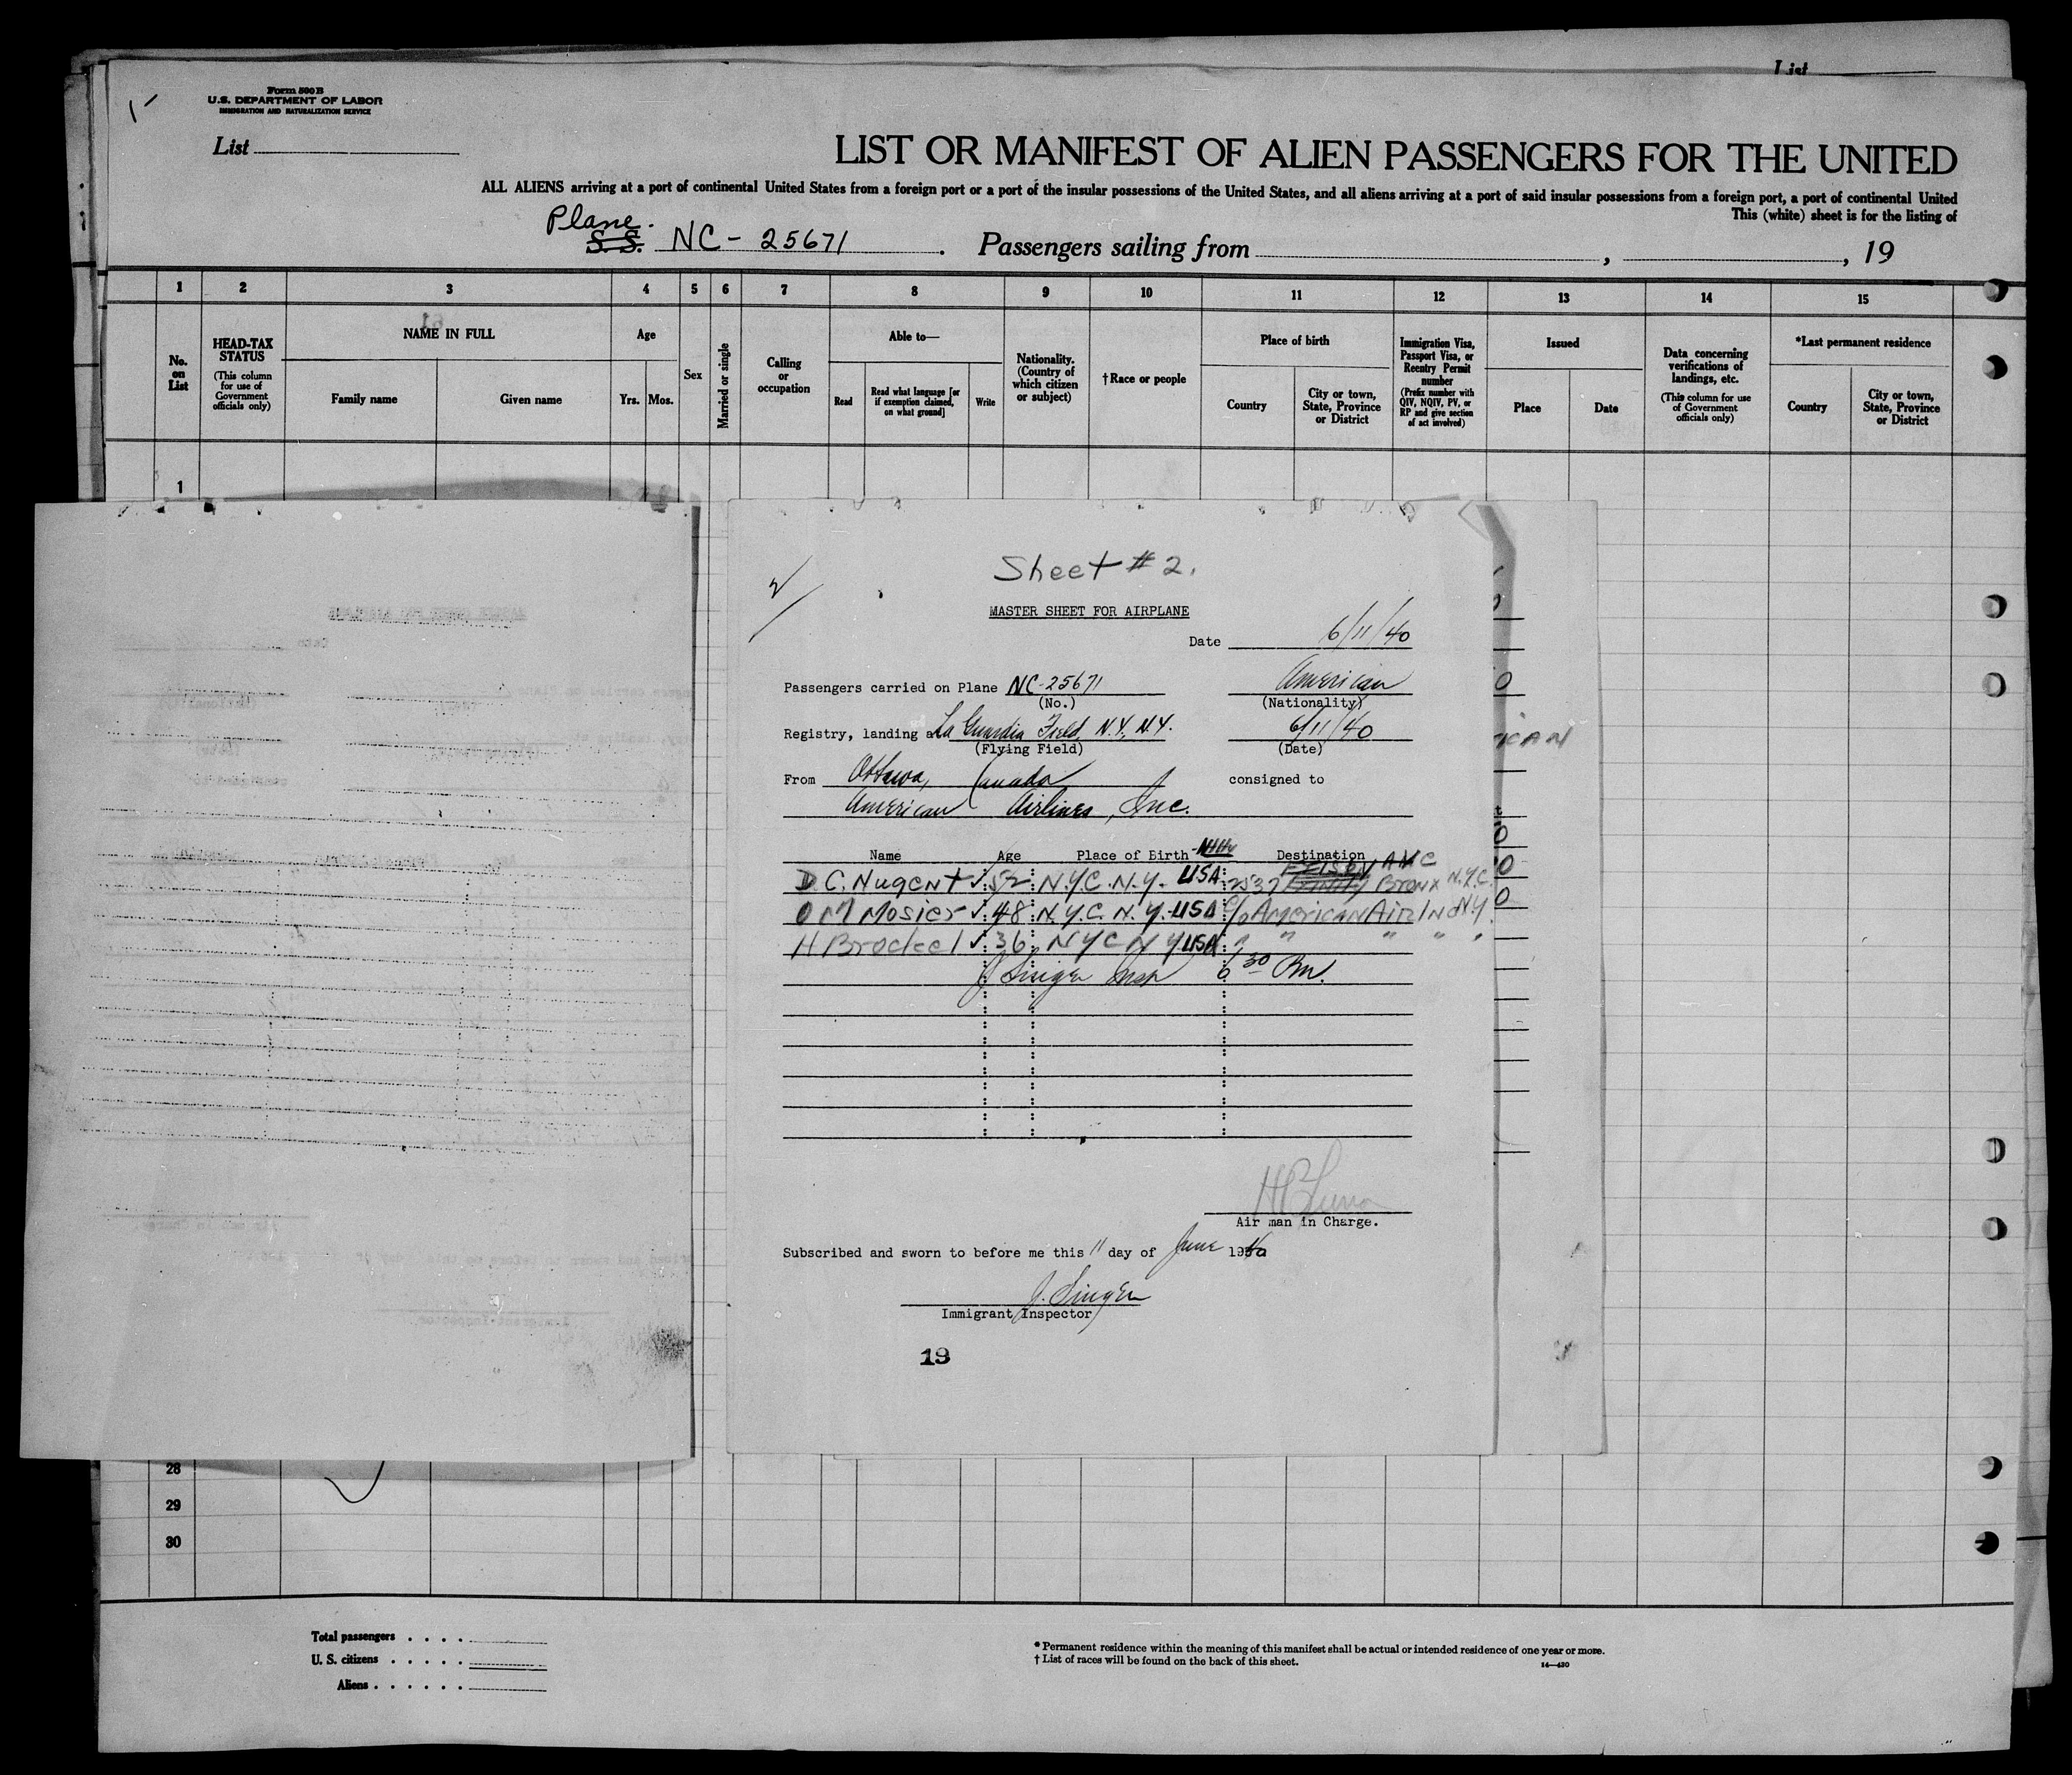 List
Form 500 B
U.S. DEPARTMENT OF LABOR
IMMIGRATION AND NATURALIZATION SERVICE
List
LIST OR MANIFEST OF ALIEN PASSENGERS FOR THE UNITED
ALL ALIENS arriving at a port of continental United States from a foreign port or a port of the insular possessions of the United States, and all aliens arriving at a port of said insular possessions from a foreign port, a port of continental United
This (white) sheet is for the listing of
Plane.
S. S. NC - 25671. Passengers sailing from , , 19
1 2 3 4 5 6 7 8 9 10 11 12 13 14 15
No. on List
HEAD-TAX STATUS
(This column for use of Government officials only)
NAME IN FULL
Family name
Given name
Age
Yrs. Mos.
Sex
Married or single
Calling or occupation
Able to—
Read
Read what language [or if exemption claimed, on what ground]
Write
Nationality. (Country of which citizen or subject)
†Race or people
Place of birth
Country
City or town, State, Province or District
Immigration Visa, Passport Visa, or Reentry Permit number
(Prefix number with QIV, NQIV, PV, or RP and give section of act involved)
Issued
Place
Date
Data concerning verifications of landings, etc.
(This column for use of Government officials only)
*Last permanent residence
Country
City or town, State, Province or District
1
Sheet # 2.
MASTER SHEET FOR AIRPLANE
Date 6/11/40
Passengers carried on Plane NC-25671 American
(No.) (Nationality)
Registry, landing at La Guardia Field, N.Y., N.Y. 6/11/40
(Flying Field) (Date)
From Ottawa, Canada consigned to
American Airlines, Inc.
Name Age Place of Birth Destination
D. C. Nugent ✓ 52 N.Y.C. N.Y. USA 2537 Bronx N.Y.C.
O M Mosier ✓ 48 N.Y.C. N.Y. USA c/o American Air
H Brockel ✓ 36 N Y C N Y USA " " " " "
J. Singer Insp 6 30 Pm.
Air man in Charge.
Subscribed and sworn to before me this 11 day of June 1940
J. Singer
Immigrant Inspector
19
28
29
30
Total passengers
U. S. citizens
Aliens
* Permanent residence within the meaning of this manifest shall be actual or intended residence of one year or more.
† List of races will be found on the back of this sheet.
14—430